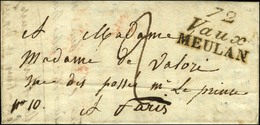 72
Vaux
MEULAN
A Madame
Madame de Valori
rue des fossés mr. Le prince
no 10.
A Paris